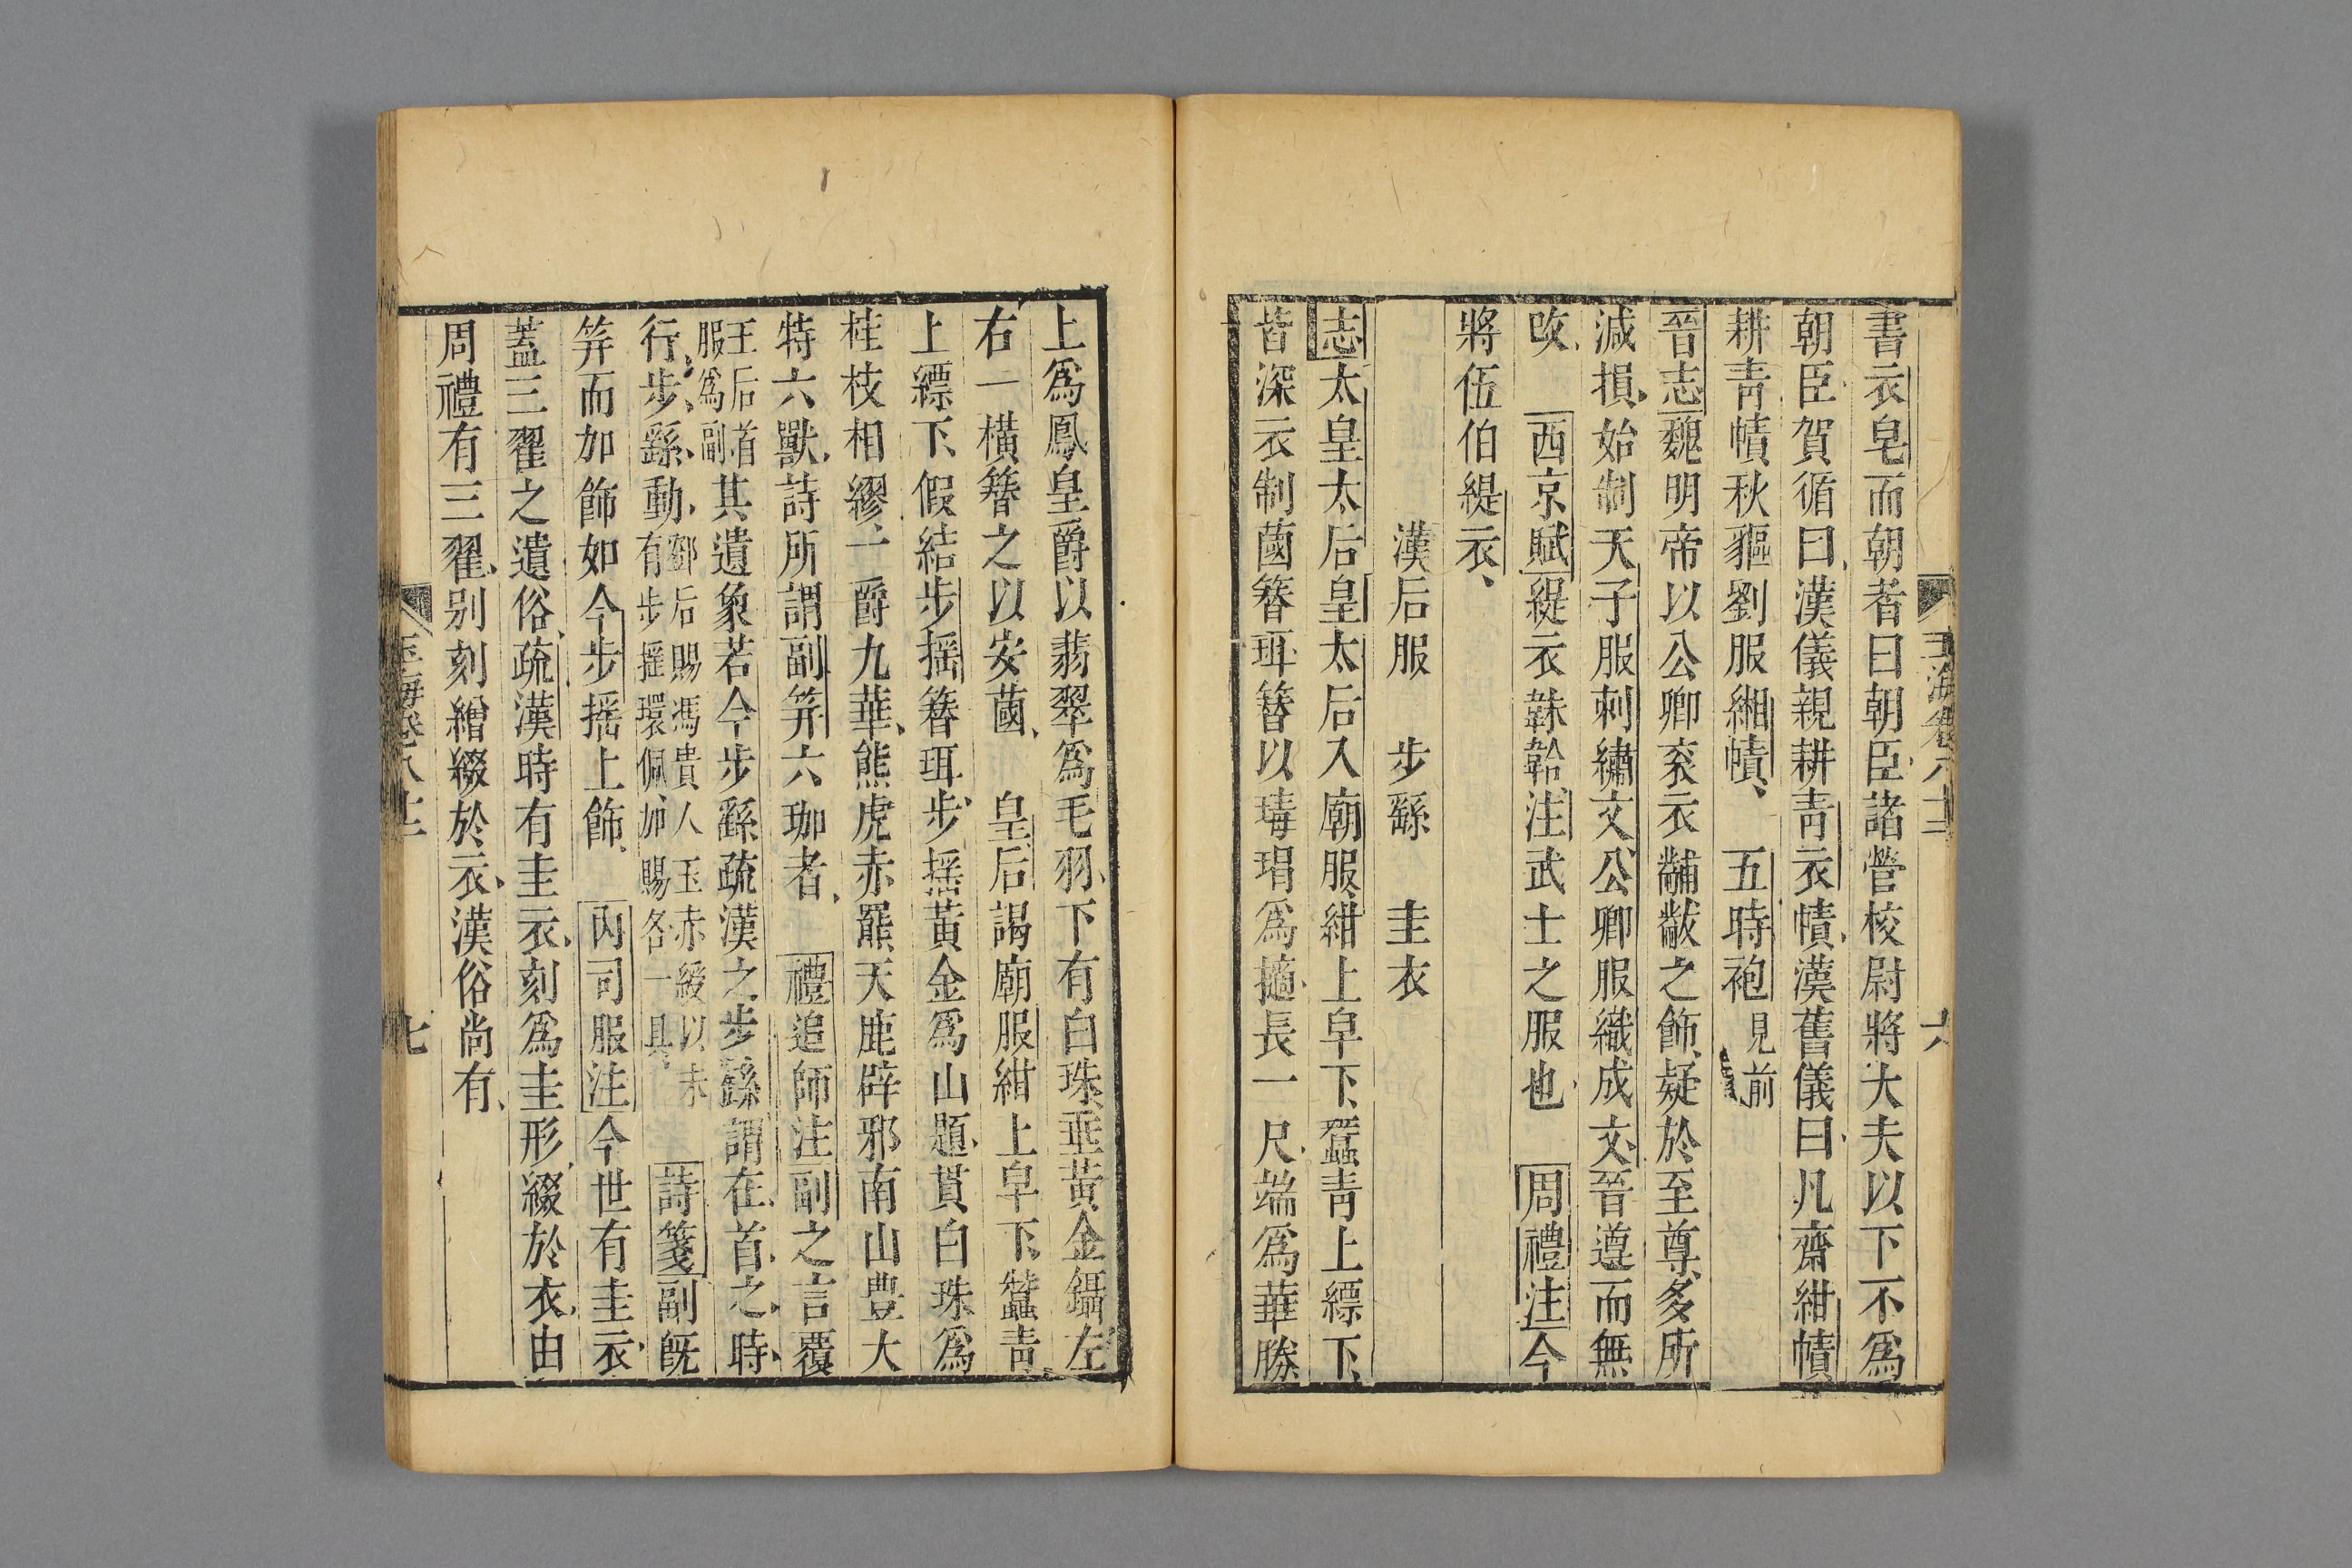 玉海卷八十二 六
書衣皂而朝者曰朝臣諸營校尉將大夫以下不爲
朝臣賀循曰漢儀親耕靑衣幘漢舊儀曰凡齋紺幘
耕靑幘秋貙劉服緗幘、 五時袍見前
晉志魏明帝以公卿衮衣黼黻之飾疑於至尊多所
減損始制天子服刺繡文公卿服織成文晉遵而無
攺 西京賦緹衣韎韐注武士之服也 周禮注今
將伍伯緹衣、
漢后服 步繇 圭衣
志太皇太后皇太后入廟服紺上皁下、蠶靑上縹下、
皆深衣制蔮簪珥簪以瑇瑁爲擿長一尺端爲華勝
上爲鳳皇爵以翡翠爲毛羽下有白珠垂黃金鑷左
右一橫簪之以安蔮、 皇后謁廟服紺上皁下、蠶靑
上縹下、假結步摇簪珥步摇黃金爲山題貫白珠爲
桂枝相繆一爵九華、熊虎赤羆天鹿辟邪南山豊大
特六獸詩所謂副筓六珈者、 禮追師注副之言覆
王后首
服爲副
其遺象若今步繇疏漢之步繇謂在首之時
行步繇動
鄧后賜馮貴人玉赤綬以未
有步摇環佩加賜各一具、
詩箋副旣
筓而加飾如今步摇上飾 內司服注今世有圭衣
蓋三翟之遺俗疏漢時有圭衣刻爲圭形綴於衣由
周禮有三翟别刻繒綴於衣漢俗尚有、
玉海卷八十二 七